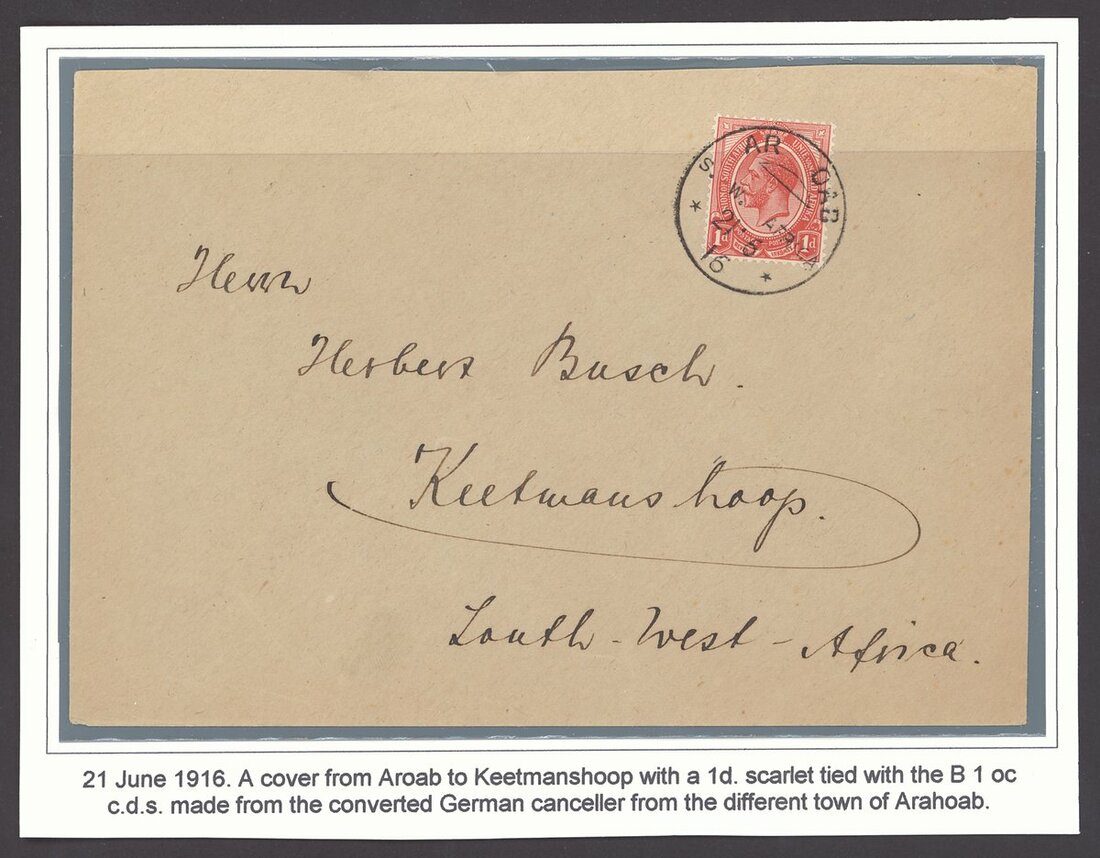 AR OAB
S. W. AFRICA
21 5
16
UNION OF SOUTH
1d 1d
Herrn
Herbert Busch.
Keetmanshoop.
South-West-Africa.
21 June 1916. A cover from Aroab to Keetmanshoop with a 1d. scarlet tied with the B 1 oc
c.d.s. made from the converted German canceller from the different town of Arahoab.